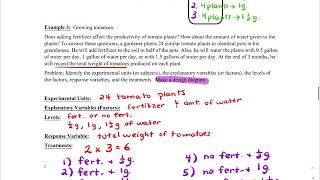 2. 4 plants → 1g
3. 4 plants →
Example 3: Growing tomatoes
Does adding fertilizer affect the productivity of tomato plants? How about the amount of water given to the
plants? To answer these questions, a gardener plants 24 similar tomato plants in identical pots in his
greenhouse. He will add fertilizer to the soil in half of the pots. Also, he will water 8 plants with 0.5 gallons
of water per day, 8 plants with 1 gallon of water per day, and 8 plants with 1.5 gallons of water per day. At the end of 3 months, he
will record the total weight of tomatoes produced on each plant.
Problem: Identify the experimental units (or subjects), the explanatory variables (or factors), the levels of
the factors, response variables, and the treatments. Make a design diagram.
Experimental Units: 24 tomato plants
Explanatory Variables (Factors): fertilizer & amt. of water
Levels: fert. or no fert.
½g, 1g, 1½g of water
Response Variable: total weight of tomatoes
Treatments: 2 × 3 = 6
1) fert. + ½g
4) no fert. + ½g
2) fert. + 1g
5) no fert. + 1g